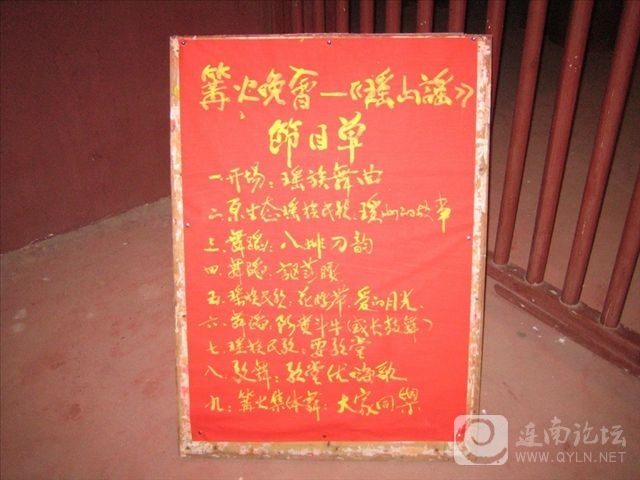 篝火晚會—《瑤山謠》
節目单
一.开场：瑶族舞曲
二.原生态瑶族民歌：瑶山的故事
三.舞蹈：八排刀韵
四.舞蹈：
五.瑶族民歌：花 爱的月光
六.舞蹈：斗牛(成长鼓舞)
七.瑶族民歌：耍歌堂
八.歌舞：歌堂优嗨歌
九.篝火集体舞：大家同樂
连南论坛
WWW.QYLN.NET